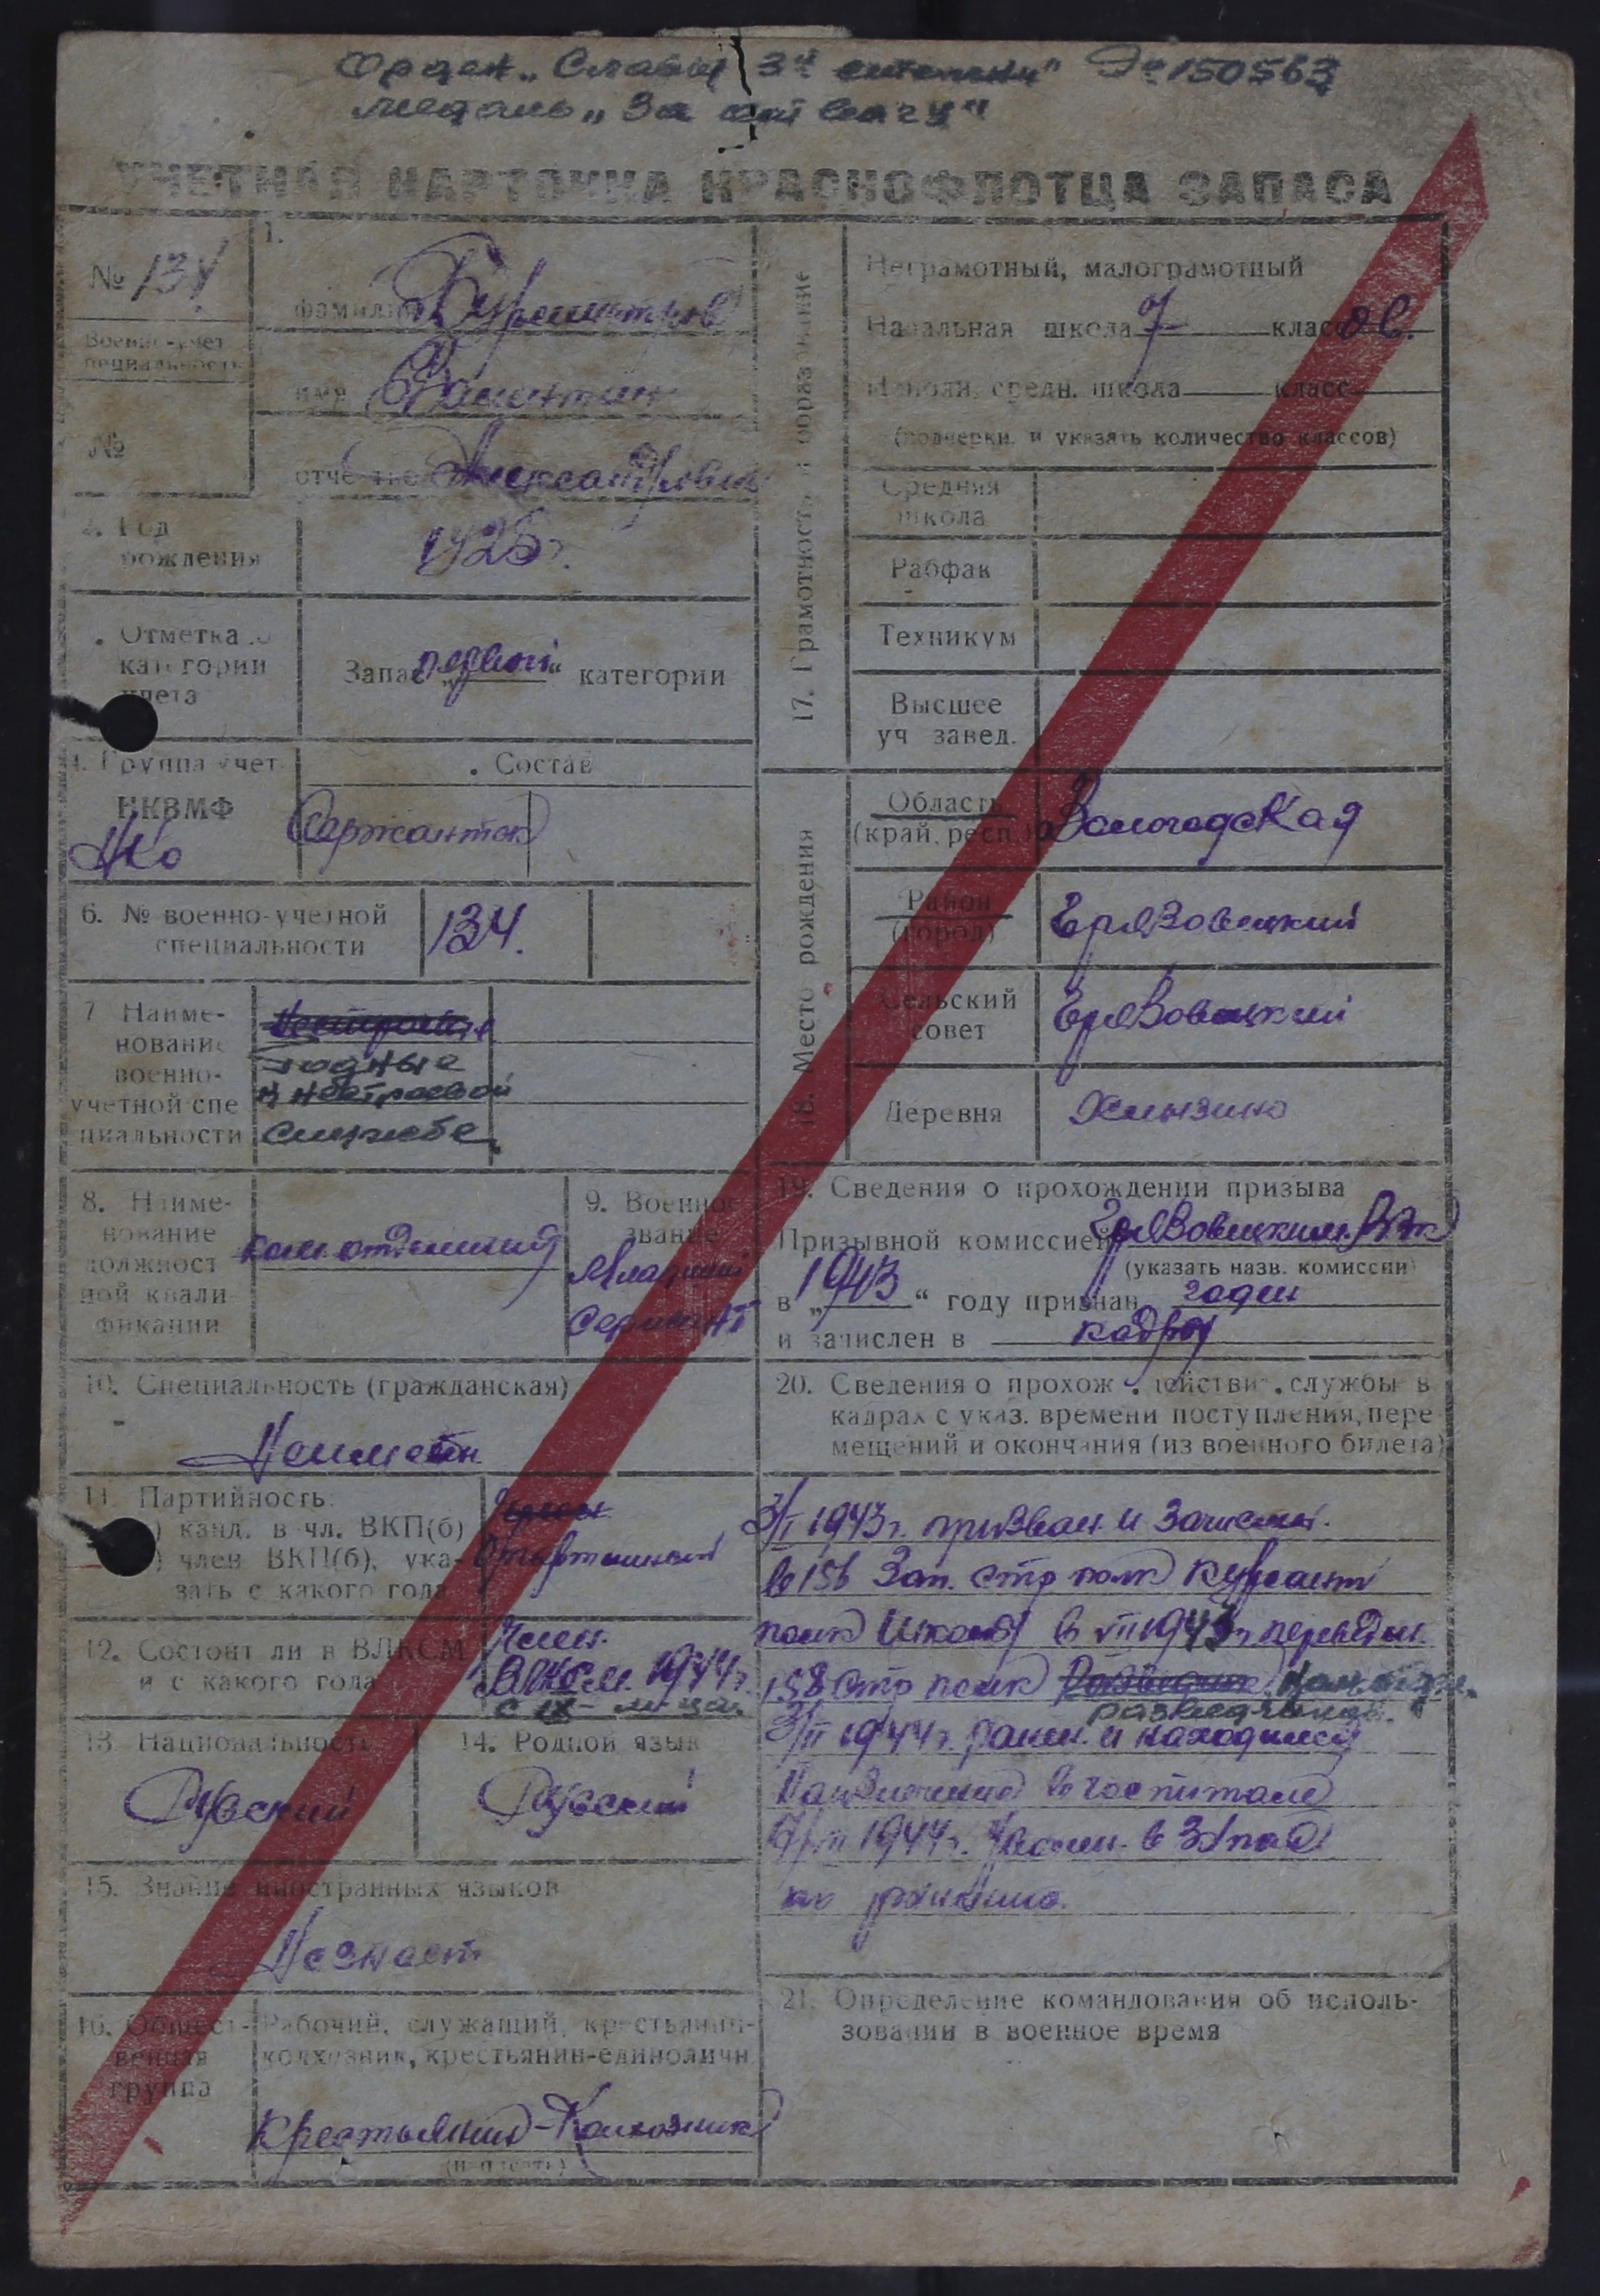 Орден „Славы 3й степени" № 150563
медаль „За отвагу"
УЧЕТНАЯ КАРТОЧКА КРАСНОФЛОТЦА ЗАПАСА
№ 134
Военно-учет.
специальность
№
1.
фамилия Бурмистров
имя Валентин
отчество Александрович
2. Год
рождения
1925 г.
Отметка о
категории
учета
Запас „первой" категории
4. Группа учета
НКВМФ
НКО
Состав
Сержантск
6. № военно-учетной
специальности
134.
7 Наиме-
нование
военно-
учетной спе
циальности
годные
к нестроевой
службе
8. Наиме-
нование
должност
ной квали
фикации
ком. отделения
9. Военное
звание
Младший
сержант
10. Специальность (гражданская)
Неимеет
11. Партийность:
) канд. в чл. ВКП(б)
) член ВКП(б), ука-
зать с какого года
12. Состоит ли в ВЛКСМ
и с какого года
Член
ВЛКСМ 1944 г.
с IX м-ца.
13. Национальность
Русский
14. Родной язык
Русский
15. Знание иностранных языков
Незнает
16. Общест-
венная
группа
Рабочий, служащий, крестьянин-
колхозник, крестьянин-единоличн.
Крестьянин-Колхозник
17. Грамотность и образование
Неграмотный, малограмотный
Начальная школа 7 классов.
Неполн. средн. школа класс
(подчеркн. и указать количество классов)
Средняя
школа
Рабфак
Техникум
Высшее
уч завед.
18. Место рождения
Область
(край, респ.)
Вологодская
Район
(город)
Грязовецкий
Сельский
совет
Грязовецкий
Деревня
19. Сведения о прохождении призыва
Призывной комиссией Грязовецким РВК
(указать назв. комиссии)
в „1943" году признан годен
и зачислен в кадры
20. Сведения о прохож. действит. службы в
кадрах с указ. времени поступления, пере
мещений и окончания (из военного билета)
1943 г. призван и зачислен.
в 156 Зап. стр полк курсант
полк Школы в VII 1943 г. переведен
158 стр полк
разведчиков.
1944 г. ранен. и находился
Наизлечение в госпитале
1944 г. Уволен. в Запас
по ранению.
21. Определение командования об исполь-
зовании в военное время